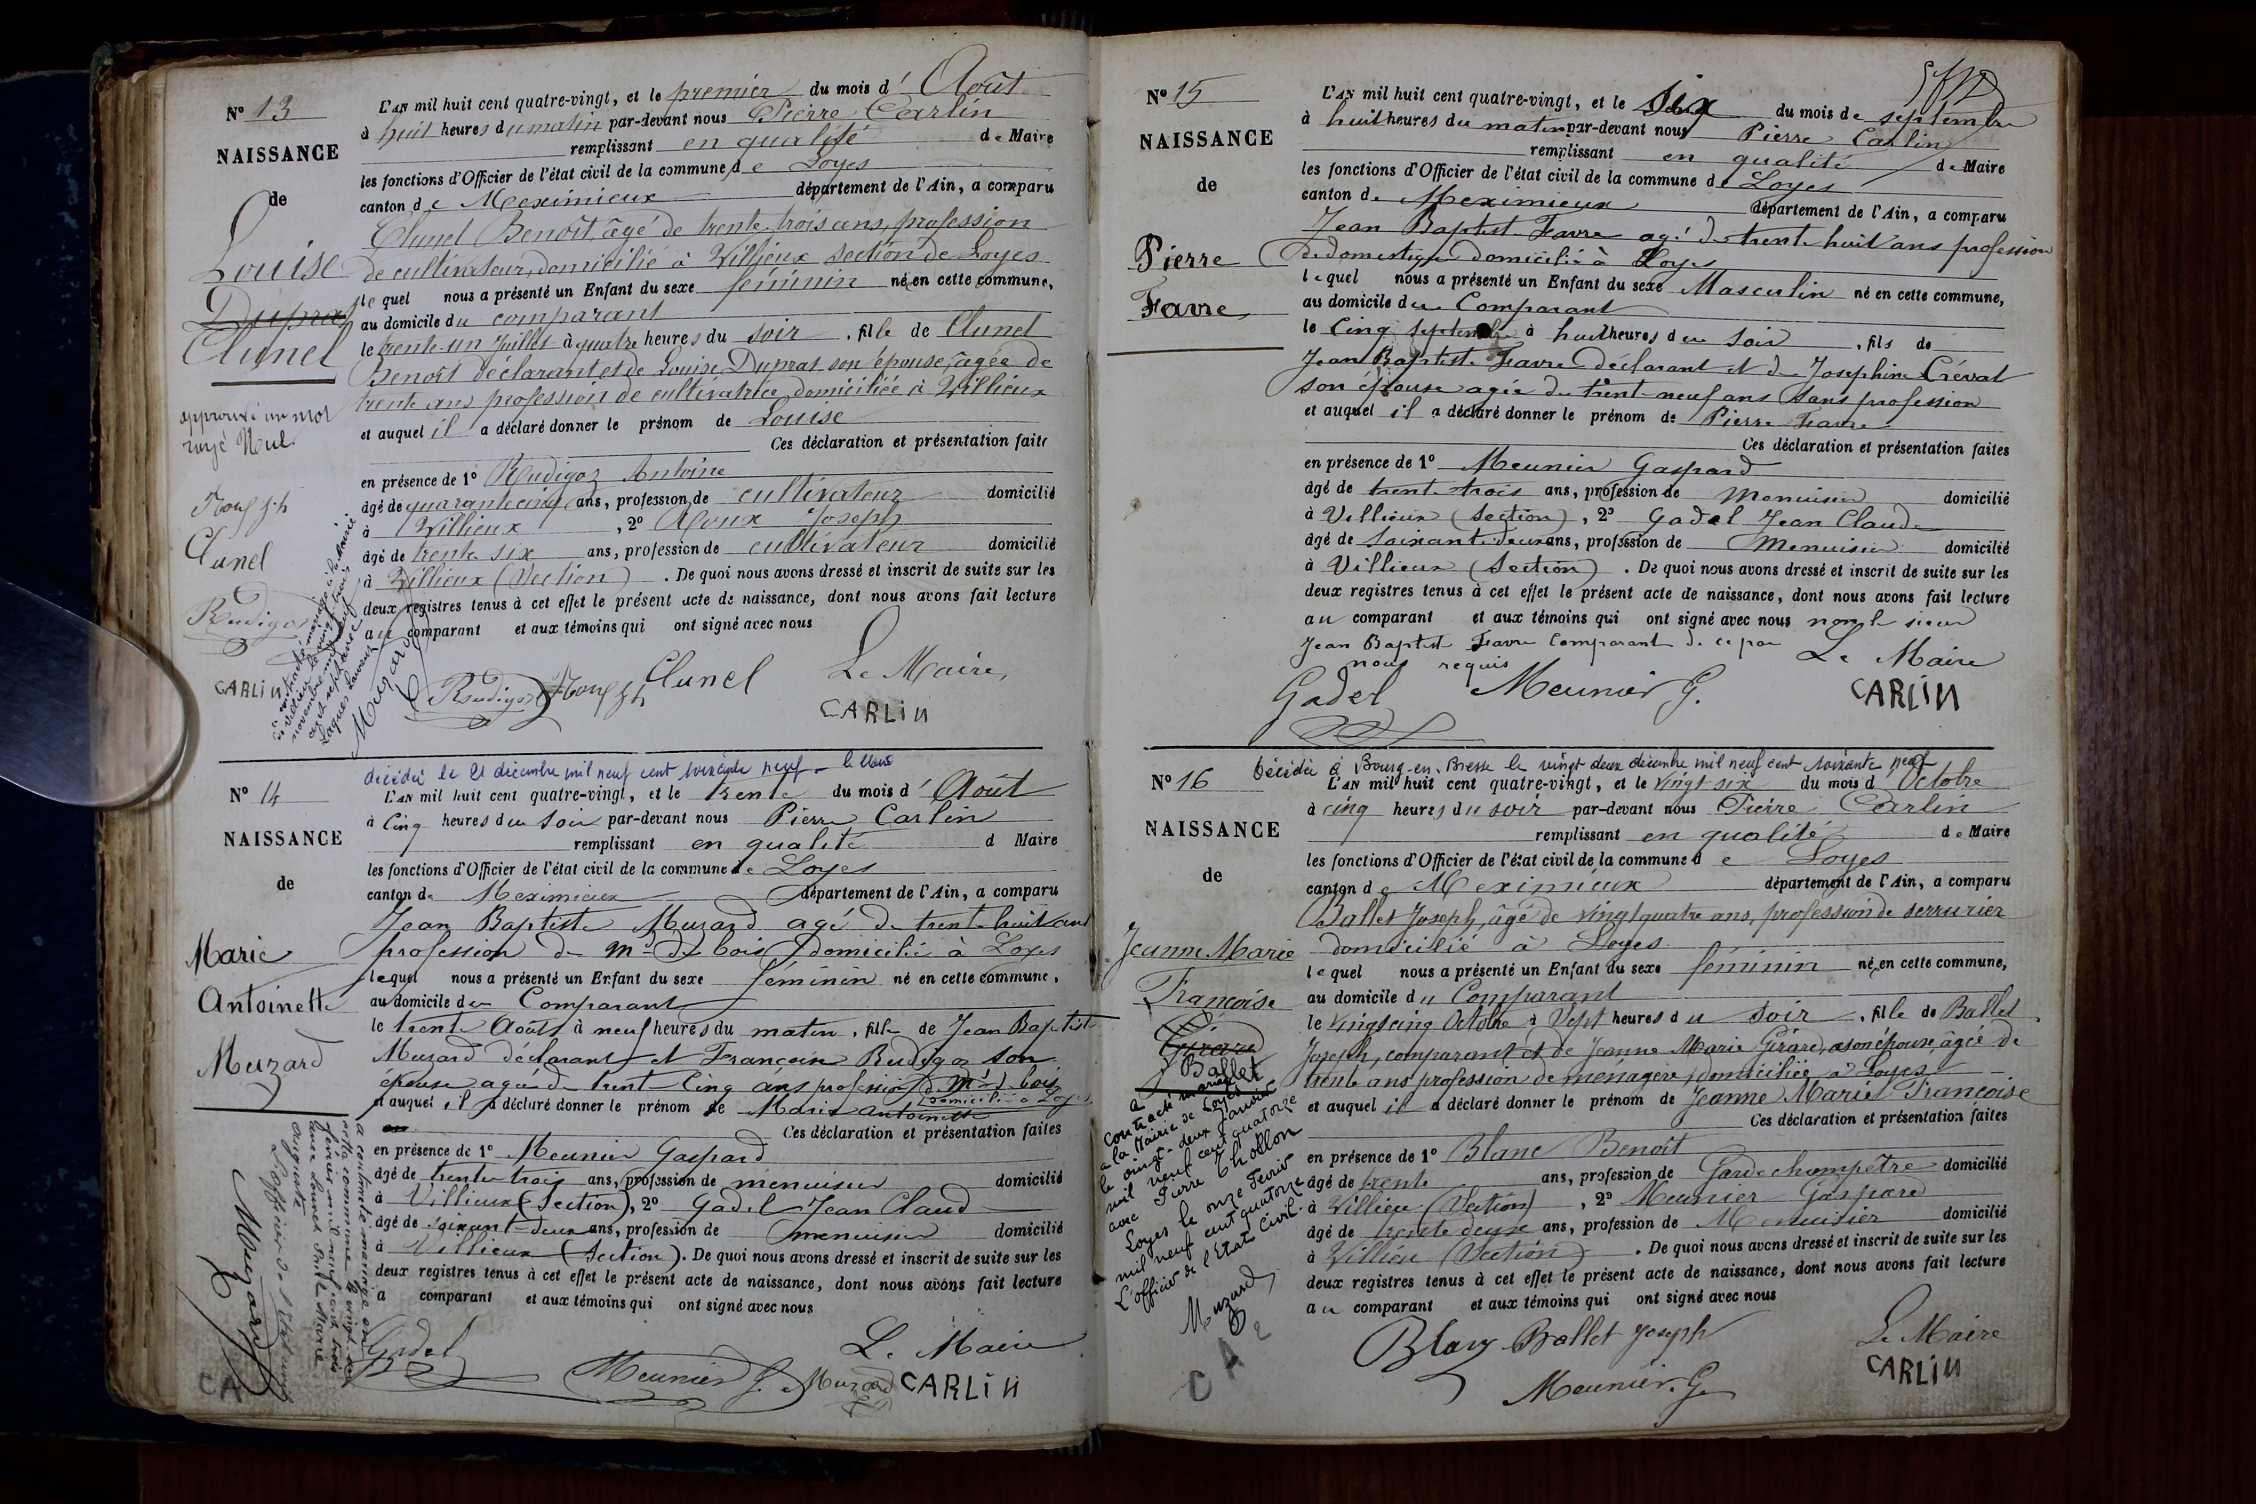 N° 13
NAISSANCE
de
Louise
Dupras
Clunel
approuvé un mot
rayé Nul
Clunel
Rudigoz
CARLIN
L'AN mil huit cent quatre-vingt, et le premier du mois d' Août
à huit heures du matin par-devant nous Pierre Carlin
remplissant en qualité de Maire
les fonctions d'Officier de l'état civil de la commune de Loyes
canton de Meximieux département de l'Ain, a comparu
Clunel Benoît, âgé de trente trois ans, profession
de cultivateur, domicilié à Villieux section de Loyes
lequel nous a présenté un Enfant du sexe féminin né en cette commune,
au domicile du comparant
le trente-un Juillet à quatre heures du soir, fille de Clunel
Benoît déclarant et de Louise Dupras son épouse, âgée de
trente ans profession de cultivatrice domiciliée à Villieux
et auquel il a déclaré donner le prénom de Louise
Ces déclaration et présentation faite
en présence de 1° Rudigoz Antoine
âgé de quarante cinq ans, profession de cultivateur domicilié
à Villieux, 2° Roux Joseph
âgé de trente six ans, profession de cultivateur domicilié
à Villieux (Section). De quoi nous avons dressé et inscrit de suite sur les
deux registres tenus à cet effet le présent acte de naissance, dont nous avons fait lecture
au comparant et aux témoins qui ont signé avec nous
Le Maire,
Rudigoz Clunel
CARLIN
Muzard
N° 14
NAISSANCE
de
Marie
Antoinette
Muzard
décédée le 21 décembre mil neuf cent soixante neuf
L'AN mil huit cent quatre-vingt, et le trente du mois d' Août
à Cinq heures du soir par-devant nous Pierre Carlin
remplissant en qualité d Maire
les fonctions d'Officier de l'état civil de la commune de Loyes
canton de Meximieux département de l'Ain, a comparu
Jean Baptiste Muzard agé de trente huit ans
profession de Md de bois domicilié à Loyes
lequel nous a présenté un Enfant du sexe féminin né en cette commune,
au domicile du Comparant
le trente Août à neuf heures du matin, fille de Jean Baptist
Muzard déclarant et Françoise Rudigoz son
épouse agée de trente Cinq ans profession de Md bois
domicilié à Loyes
et auquel il a déclaré donner le prénom de Marie Antoinette
Ces déclaration et présentation faites
en présence de 1° Meunier Gaspard
âgé de trente trois ans, profession de menuisier domicilié
à Villieux (Section), 2° Gadel Jean Claud
âgé de soixante deux ans, profession de menuisier domicilié
à Villieux (Section). De quoi nous avons dressé et inscrit de suite sur les
deux registres tenus à cet effet le présent acte de naissance, dont nous avons fait lecture
a comparant et aux témoins qui ont signé avec nous
Le Maire
Gadel Meunier G. Muzard CARLIN
a contracté mariage en
cette commune le vingt
février mil neuf cent trois
avec Paul Marie
Auguste
L'officier de l'état civil
Muzard
CA
N° 15
NAISSANCE
de
Pierre
Favre
L'AN mil huit cent quatre-vingt, et le Six du mois de septembre
à huit heures du matin par-devant nous Pierre Carlin
remplissant en qualité de Maire
les fonctions d'Officier de l'état civil de la commune de Loyes
canton de Meximieux département de l'Ain, a comparu
Jean Baptist Favre agé de trente huit ans profession
de domestique domicilié à Loyes
lequel nous a présenté un Enfant du sexe Masculin né en cette commune,
au domicile du Comparant
le Cinq septembre à huit heures du soir, fils de
Jean Baptist Favre déclarant et de Josephine Créval
son épouse agée de trente-neuf ans sans profession
et auquel il a déclaré donner le prénom de Pierre Favre
Ces déclaration et présentation faites
en présence de 1° Meunier Gaspard
âgé de trente trois ans, profession de Menuisier domicilié
à Villieux (Section), 2° Gadel Jean Claude
âgé de soixante deux ans, profession de Menuisier domicilié
à Villieux (Section). De quoi nous avons dressé et inscrit de suite sur les
deux registres tenus à cet effet le présent acte de naissance, dont nous avons fait lecture
au comparant et aux témoins qui ont signé avec nous non le sieur
Jean Baptist Favre Comparant de ce par
nous requis
Le Maire
Gadel Meunier G. CARLIN
N° 16
NAISSANCE
de
Jeanne Marie
Françoise
Girard
Ballet
Décédée à Bourg-en-Bresse le vingt deux décembre mil neuf cent soixante neuf
L'AN mil huit cent quatre-vingt, et le vingt six du mois d Octobre
à cinq heures du soir par-devant nous Pierre Carlin
remplissant en qualité de Maire
les fonctions d'Officier de l'état civil de la commune de Loyes
canton de Meximieux département de l'Ain, a comparu
Ballet Joseph, âgé de vingt quatre ans, profession de serrurier
domicilié à Loyes
lequel nous a présenté un Enfant du sexe féminin né en cette commune,
au domicile du Comparant
le vingt cinq Octobre à Sept heures du soir, fille de Ballet
Joseph, comparant et de Jeanne Marie Girard, son épouse, âgée de
trente ans profession de ménagère, domiciliée à Loyes
et auquel il a déclaré donner le prénom de Jeanne Marie Françoise
Ces déclaration et présentation faites
en présence de 1° Blanc Benoît
âgé de trente ans, profession de Garde champêtre domicilié
à Villieu (Section), 2° Meunier Gaspard
âgé de trente deux ans, profession de Menuisier domicilié
à Villieu (Section). De quoi nous avons dressé et inscrit de suite sur les
deux registres tenus à cet effet le présent acte de naissance, dont nous avons fait lecture
au comparant et aux témoins qui ont signé avec nous
Le Maire
Blanc Ballet Joseph CARLIN
Meunier. G.
a
contracté mariage
à la Mairie de Loyes
le vingt-deux Janvier
mil neuf cent quatorze
avec Pierre Chollon
Loyes le onze Février
mil neuf cent quatorze
L'officier de l'Etat Civil.
Muzard